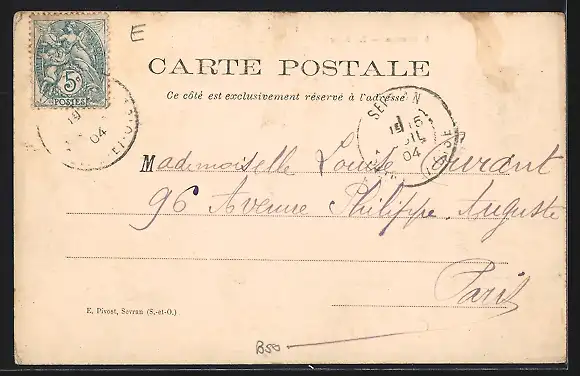 E
5c
POSTES
CARTE POSTALE
Ce côté est exclusivement réservé à l'adresse
19
04
SEVRAN
15
04
Mademoiselle Louise Courant
96 Avenue Philippe Auguste
Paris
E. Pivost, Sevran (S.-et-O.)
B50